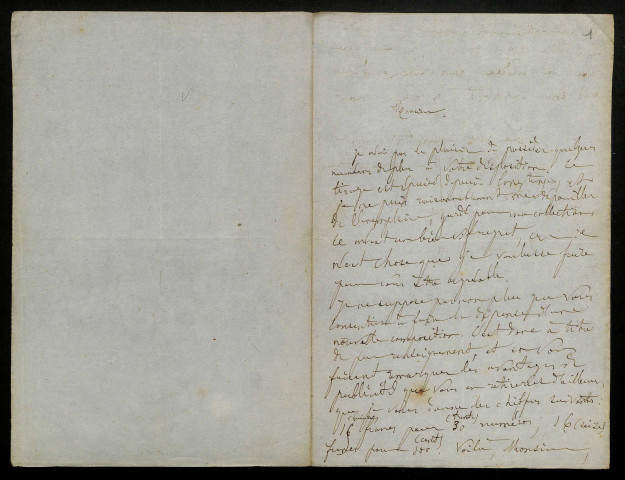 1
Monsieur,
je n'ai pas le plaisir de posséder quelques
numéros de plus à votre disposition. Le
tirage est épuisé depuis longtemps et
je ne puis raisonnablement me dépouiller
de l'exemplaire, gardé pour ma collection.
Ce m'est un bien regret car je
n'est chose que je voulusse faire
pour vous être agréable.
Je ne suppose pas non plus que vous
consentiez à faire la dépense d'une
nouvelle composition. C'est donc à titre
de pur renseignement, et en vous
faisant remarquer les avantages de
publicité que vous en retireriez d'ailleurs,
que je vous donne les chiffres suivants :
francs pour 30 (trente) numéros, 16 (seize)
francs pour 100 (cent). Voilà, Monsieur,